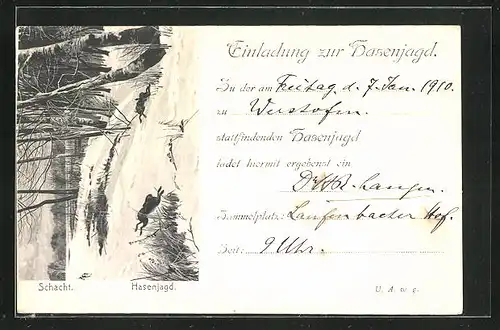 Einladung zur Hasenjagd.
Zu der am Freitag d. 7 Jan. 1910.
zu
stattfindenden Hasenjagd
ladet hiermit ergebenst ein
Sammelplatz: Laufenbacher Hof.
Zeit: 9 Uhr.
Schacht. Hasenjagd. U. A. w. g.